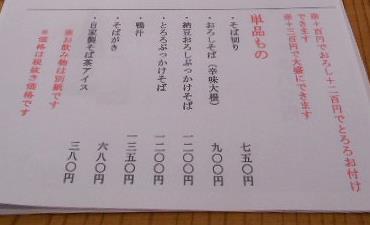 ※＋百円でおろし＋二百円でとろろお付け
できます
※＋三百円で大盛にできます
単品もの
・そば切り 七五〇円
・おろしそば（辛味大根） 九〇〇円
・納豆おろしぶっかけそば 一二〇〇円
・とろろぶっかけそば 一二〇〇円
・鴨汁 一三五〇円
・そばがき 六八〇円
・自家製そば茶アイス 三八〇円
※お飲み物は別紙です
※価格は税抜き価格です